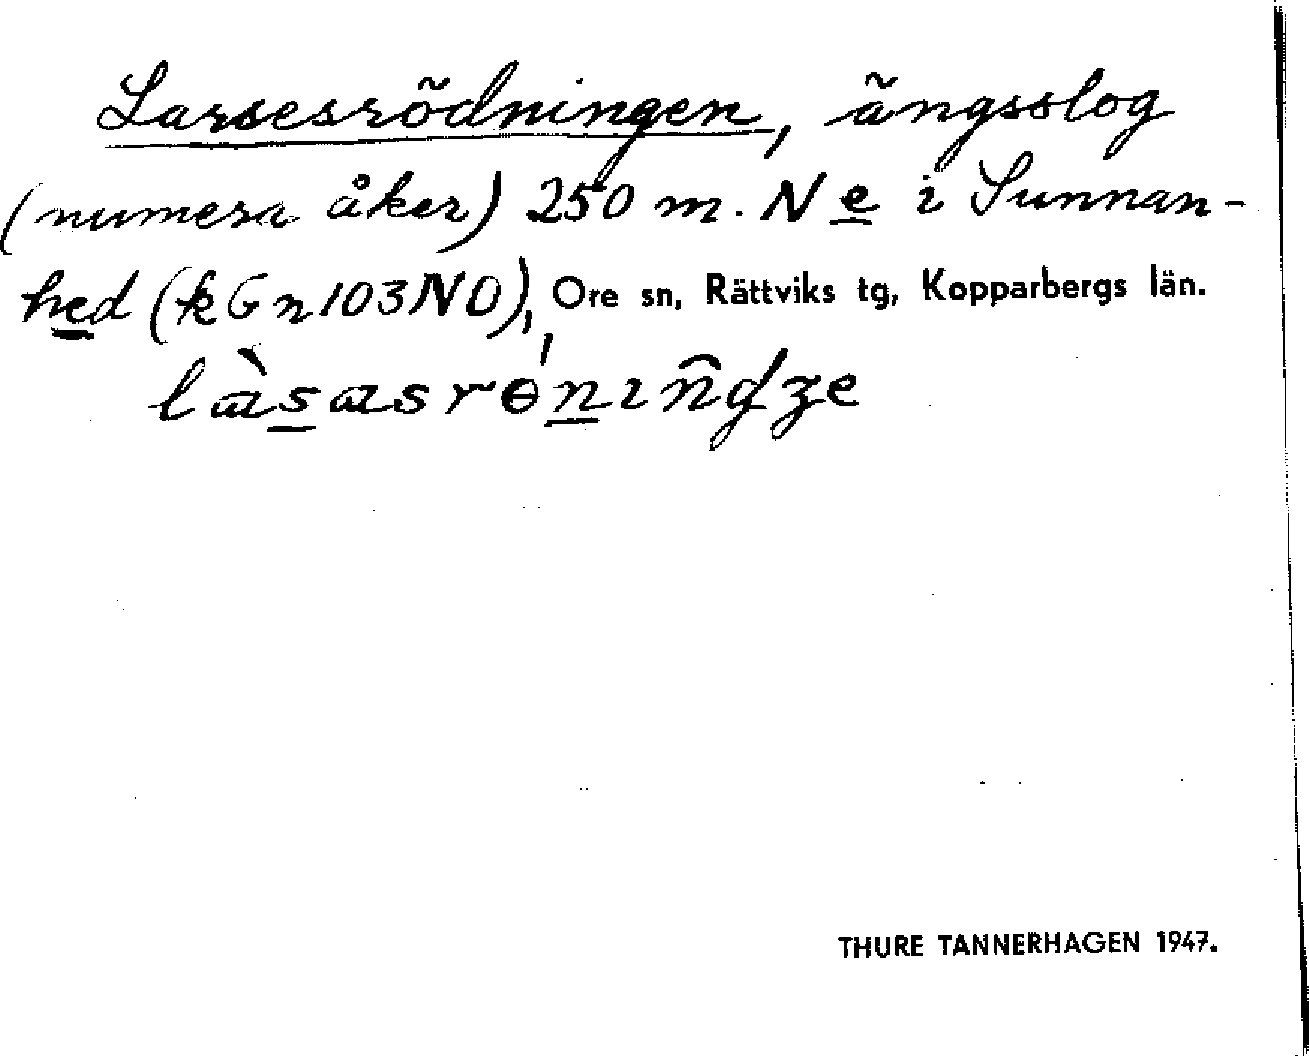 Larsesrödningen, ängsslog
(numera åker) 250 m. N e i Sunnan-
hed (kGn103NO), Ore sn, Rättviks tg, Kopparbergs län.
THURE TANNERHAGEN 1947.